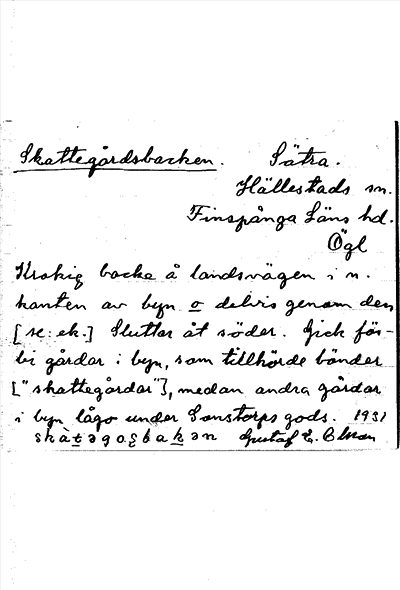 Skattegårdsbacken. Sätra.
Hällestads sn.
Finspånga Läns hd.
Ögl
Krokig backe å landsvägen i n.
kanten av byn o delvis genom den
[se: ek.] Sluttar åt söder. Gick för-
bi gårdar i byn, som tillhörde bönder
["skattegårdar"], medan andra gårdar
i byn lågo under Sonstorps gods. 1931
Gustaf E. Olsson